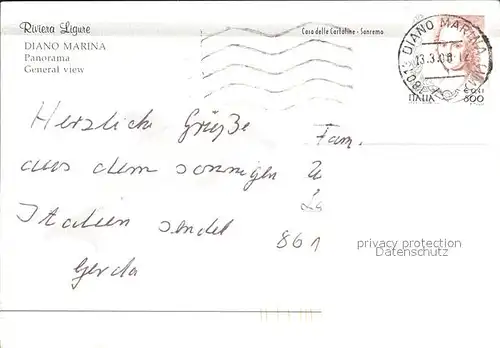 Riviera Ligure
Casa delle Cartoline - Sanremo
DIANO MARINA
Panorama
General view
DIANO MARINA
13.3.00
ITALIA
800
Herzliche Grüße
aus dem sonnigen
Italien sendet
Gerda
Fam.
861
privacy protection
Datenschutz